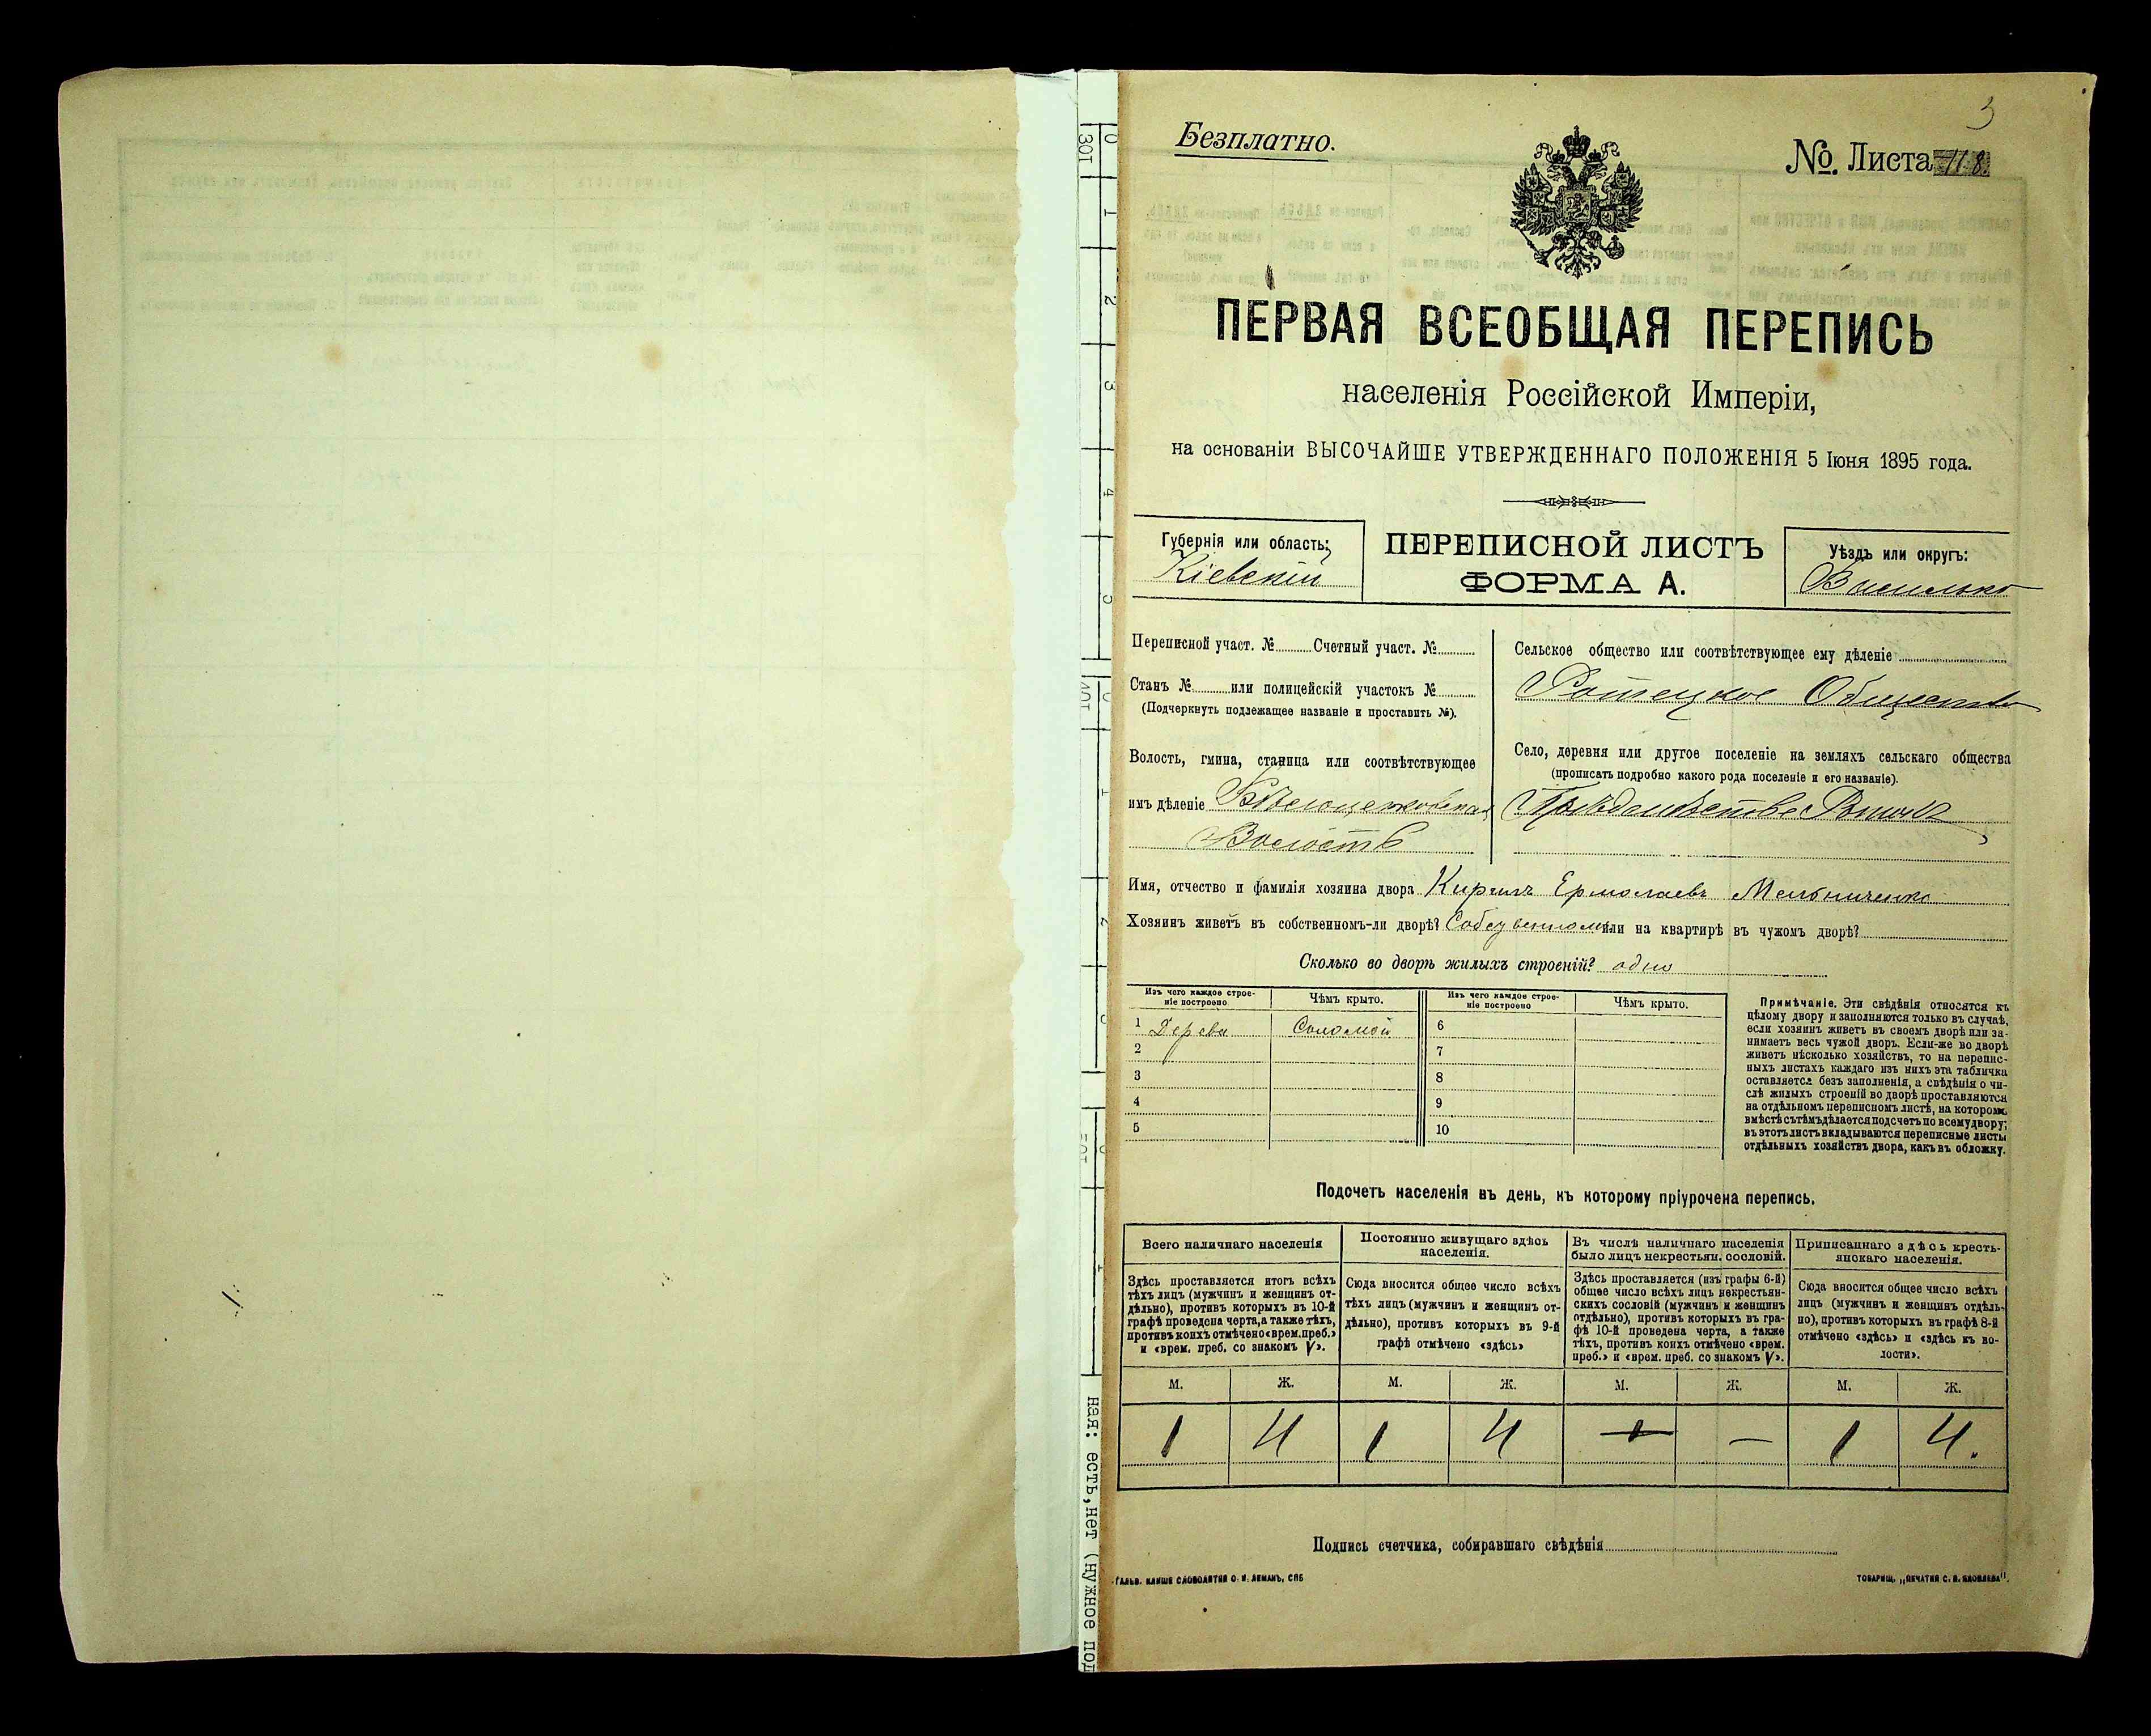 3
Безплатно.
№. Листа 118.
ПЕРВАЯ ВСЕОБЩАЯ ПЕРЕПИСЬ
населенія Россійской Имперіи,
на основаніи ВЫСОЧАЙШЕ УТВЕРЖДЕННАГО ПОЛОЖЕНІЯ 5 Іюня 1895 года.
Губернія или область:
Кіевскій
ПЕРЕПИСНОЙ ЛИСТЪ
ФОРМА А.
Уѣздъ или округъ:
Василько
Переписной участ. № Счетный участ. №
Станъ № или полицейскій участокъ №
(Подчеркнуть подлежащее названіе и проставить №).
Волость, гмина, станица или соотвѣтствующее
имъ дѣленіе
Волость
Сельское общество или соотвѣтствующее ему дѣленіе
Общество
Село, деревня или другое поселеніе на земляхъ сельскаго общества
(прописать подробно какого рода поселеніе и его названіе).
Имя, отчество и фамилія хозяина двора Кирилъ Ермолаевъ Мельниченко
Хозяинъ живетъ въ собственномъ-ли дворѣ? или на квартирѣ въ чужомъ дворѣ?
Сколько во дворѣ жилыхъ строеній? одно
Изъ чего каждое строе-
ніе построено
Чѣмъ крыто.
Изъ чего каждое строе-
ніе построено
Чѣмъ крыто.
1 Дерева Соломой
2
3
4
5
6
7
8
9
10
Примѣчаніе. Эти свѣдѣнія относятся къ
цѣлому двору и заполняются только въ случаѣ,
если хозяинъ живетъ въ своемъ дворѣ или за-
нимаетъ весь чужой дворъ. Если-же во дворѣ
живетъ нѣсколько хозяйствъ, то на перепис-
ныхъ листахъ каждаго изъ нихъ эта табличка
оставляется безъ заполненія, а свѣдѣнія о чи-
слѣ жилыхъ строеній во дворѣ проставляются
на отдѣльномъ переписномъ листѣ, на которомъ
вмѣстѣ съ тѣмъ дѣлается подсчетъ по всему двору;
въ этотъ листъ вкладываются переписные листы
отдѣльныхъ хозяйствъ двора, какъ въ обложку.
Подочетъ населенія въ день, къ которому пріурочена перепись.
Всего наличнаго населенія
Постоянно живущаго здѣсь
населенія.
Въ числѣ наличнаго населенія
было лицъ некрестьян. сословій.
Приписаннаго здѣсь кресть-
янскаго населенія.
Здѣсь проставляется итогъ всѣхъ
тѣхъ лицъ (мужчинъ и женщинъ от-
дѣльно), противъ которыхъ въ 10-й
графѣ проведена черта, а также тѣхъ,
противъ коихъ отмѣчено «врем. преб.»
и «врем. преб. со знакомъ V».
Сюда вносится общее число всѣхъ
тѣхъ лицъ (мужчинъ и женщинъ от-
дѣльно), противъ которыхъ въ 9-й
графѣ отмѣчено «здѣсь»
Здѣсь проставляется (изъ графы 6-й)
общее число всѣхъ лицъ некрестьян-
скихъ сословій (мужчинъ и женщинъ
отдѣльно), противъ которыхъ въ гра-
фѣ 10-й проведена черта, а также
тѣхъ, противъ коихъ отмѣчено «врем.
преб.» и «врем. преб. со знакомъ V».
Сюда вносится общее число всѣхъ
лицъ (мужчинъ и женщинъ отдѣль-
но), противъ которыхъ въ графѣ 8-й
отмѣчено «здѣсь» и «здѣсь къ во-
лости».
М. Ж. М. Ж. М. Ж. М. Ж.
1 4 1 4 — — 1 4.
Подпись счетчика, собиравшаго свѣдѣнія
ГАЛЬВ. КЛИШЕ СЛОВОЛИТНИ О. И. ЛЕМАНЪ, СПБ
ТОВАРИЩ. „ПЕЧАТНЯ С. П. ЯКОВЛЕВА".
ная: есть, нет (нужное под